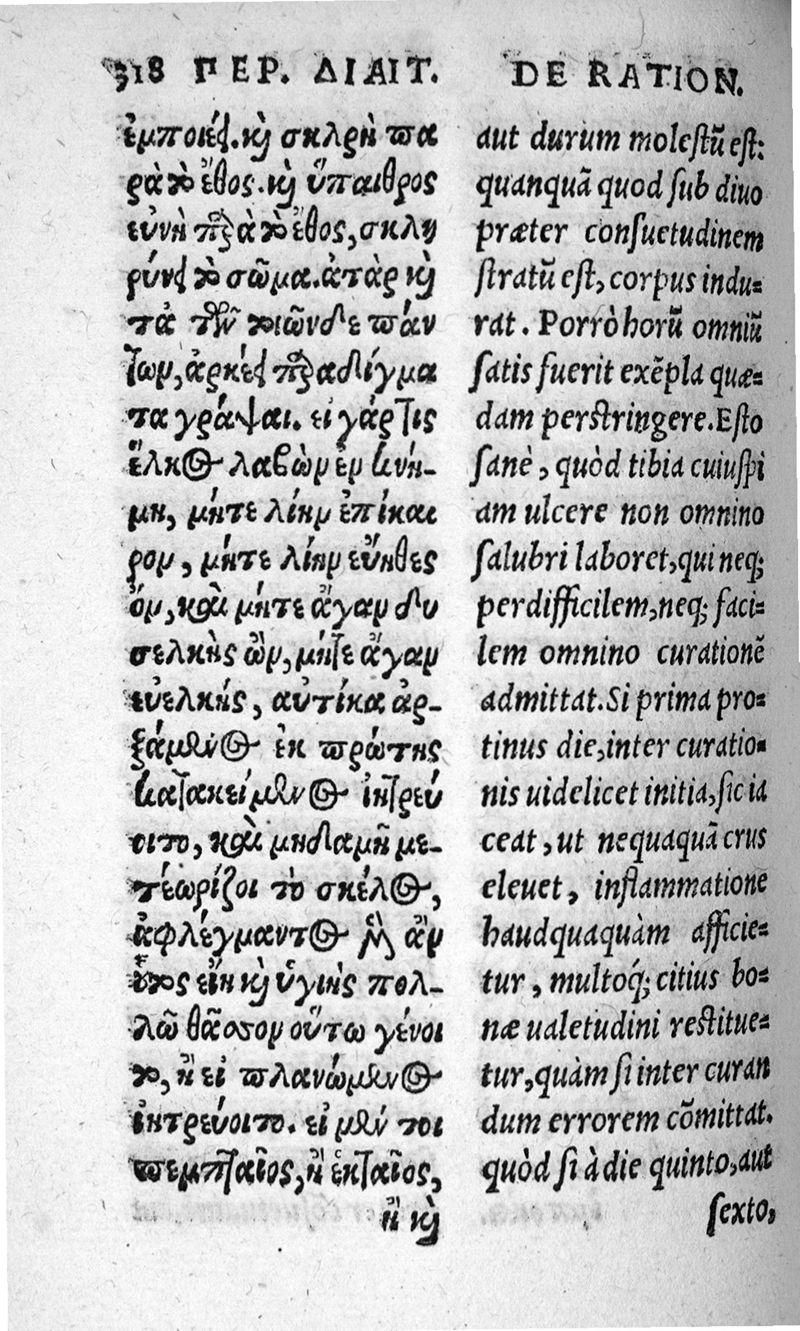 318 ΠΕΡ. ΔΙΑΙΤ.
ἐμποιέει. καὶ σκλρὴ πα
ρὰ τὸ ἔθος. καὶ ὕπαιθρος
εὐνὴ παρὰ τὸ ἔθος, σκλη
ρύνει τὸ σῶμα. ἀτὰρ καὶ
τὰ τῶν τοιῶνδε πάν
των, ἀρκέει παραδίγμα
τα γράψαι. εἰ γάρ τις
ἕλκος λαβὼν ἐν κνή-
μη, μήτε λίην ἐπίκαι
ρον, μήτε λίην εὔηθες
ὄν, καὶ μήτε ἄγαν δυ
σελκὴς ὢν, μήτε ἄγαν
εὐελκής, αὐτίκα ἀρ-
ξάμενος ἐκ πρώτης
κατακείμενος ἰητρεύ
οιτο, καὶ μηδαμῆ με-
τεωρίζοι τὸ σκέλος,
ἀφλέγμαντος μὲν ἂν
οὗτος εἴη καὶ ὑγιὴς πολ-
λῶ θᾶσσον οὕτω γένοι
το, ἢ εἰ πλανώμενος
ἰητρεύοιτο. εἰ μέν τοι
πεμπταῖος, ἢ ἑκταῖος,
ἢ καὶ
DE RATION.
aut durum molestũ est:
quanquã quod sub diuo
præter consuetudinem
stratũ est, corpus indu-
rat. Porrò horũ omniũ
satis fuerit exẽpla quæ-
dam perstringere. Esto
sanè, quòd tibia cuiuspi
am ulcere non omnino
salubri laboret, qui neq;
perdifficilem, neq; faci-
lem omnino curationẽ
admittat. Si prima pro-
tinus die, inter curatio-
nis uidelicet initia, sic ia
ceat, ut nequaquã crus
eleuet, inflammatione
haudquaquàm afficie-
tur, multoq́; citius bo-
næ ualetudini restitue-
tur, quàm si inter curan
dum errorem cõmittat.
quòd si à die quinto, aut
sexto,